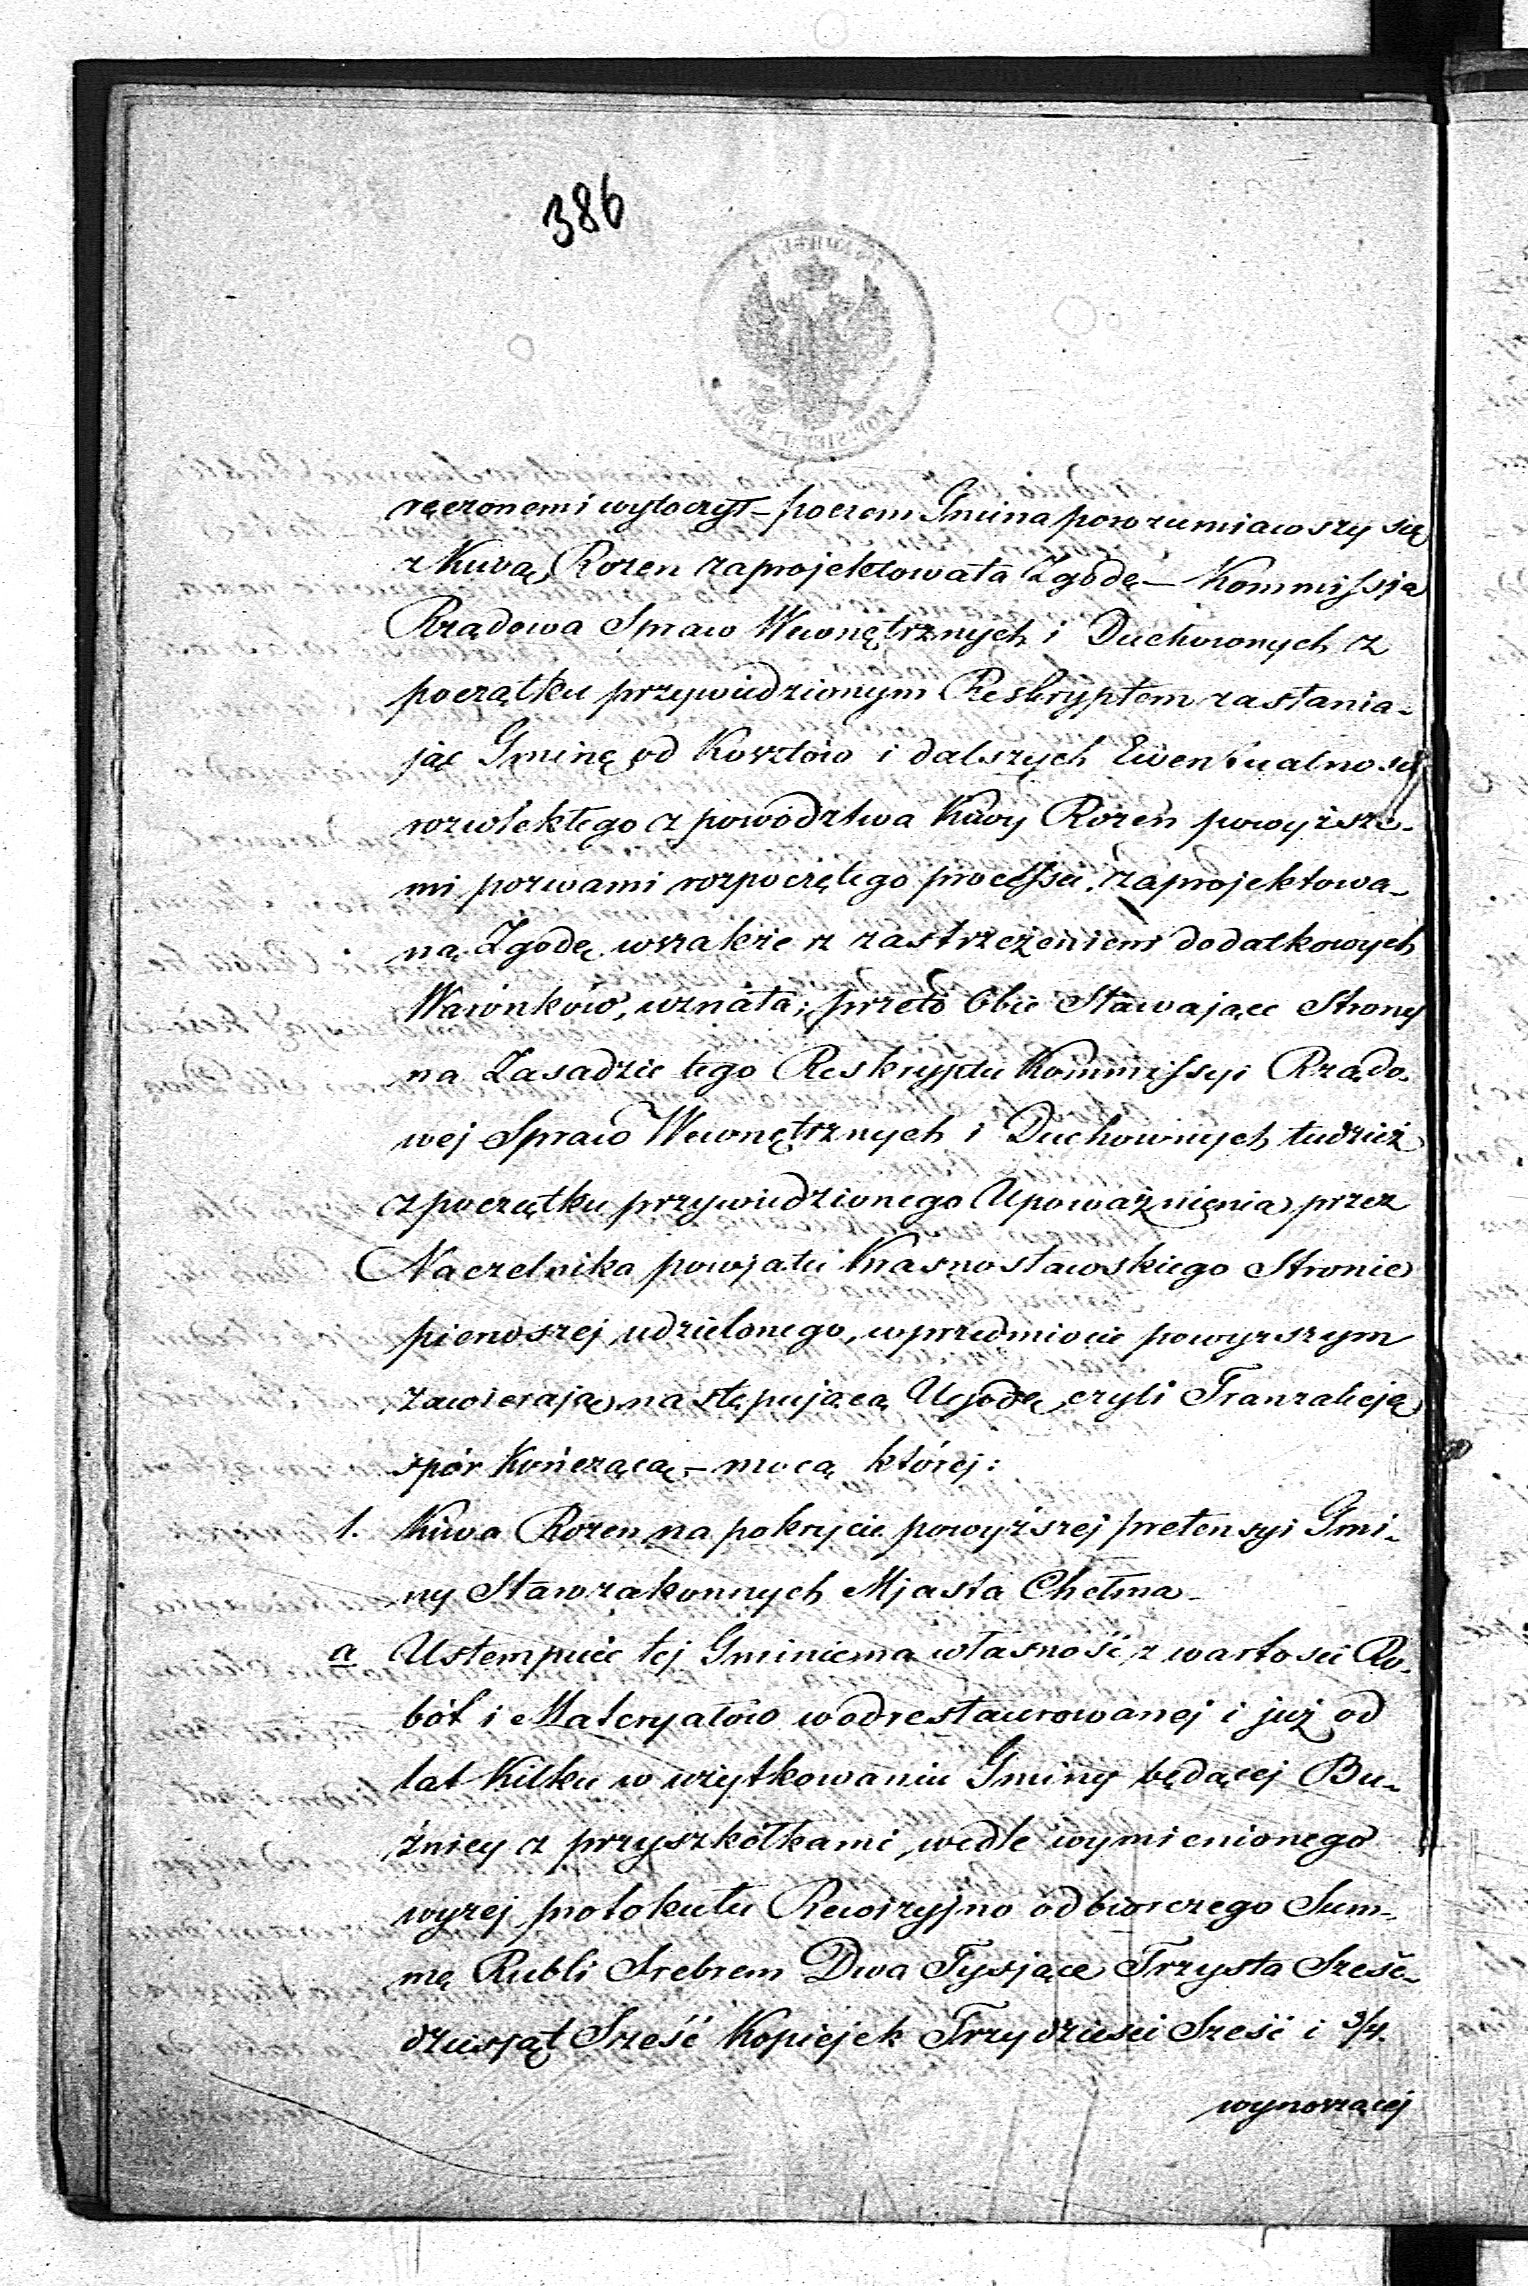 386
ręczonemi wytoczył – poczem Gmina porozumiawszy się
z Kiwą Rozen zaprojektowała Zgodę – Kommissja
Rządowa Spraw Wewnętrznych i Duchownych z
początku przywiedzionym Reskryptem zasłania-
jąc Gminę od Kosztów i dalszych Ewentualności
rozwlekłego z powództwa Kiwy Rozen powyższe-
mi pozwami rozpoczętego processu, zaprojektowa-
ną Zgodę wszakże z zastrzeżeniem dodatkowych
Warunków, uznała; przeto Obie Stawające Strony
na Zasadzie tego Reskryptu Kommissyi Rządo-
wej Spraw Wewnętrznych i Duchownych tudzież
z początku przywiedzionego Upoważnienia przez
Naczelnika powjatu Krasnostawskiego Stronie
pierwszej udzielonego, w przedmiocie powyższym
zawierają następującą Ugodę czyli Tranzakcją
spór Kończącą – mocą której:
1. Kiwa Rozen na pokrycie powyższej pretensyi Gmi-
ny Starozakonnych Mjasta Chełma –
a Ustempuie tej Gminie ma własność z wartości Ro-
bót i Materyałów w odrestaurowanej i już od
lat Kilku w użytkowaniu Gminy będącej Bu-
źnicy z przyszkółkami, wedle wymienionego
wyżej protokułu Rewizyjno odbiorczego Sum-
mę Rubli Srebrem Dwa Tysjące Trzysta Sześć-
dziesjąt Sześć Kopiejek Trzydzieści Sześć i 3/4.
wynoszącej